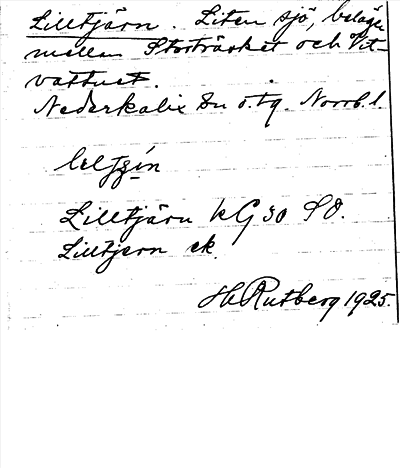 Lilltjärn. Liten sjö, belägen
mellan Storträsket och Vit-
vattnet.
Nederkalix sn o. tg. Norrb. l.
Lilltjärn kG 30 SO.
Lilltjern ek.
H Rutberg 1925.